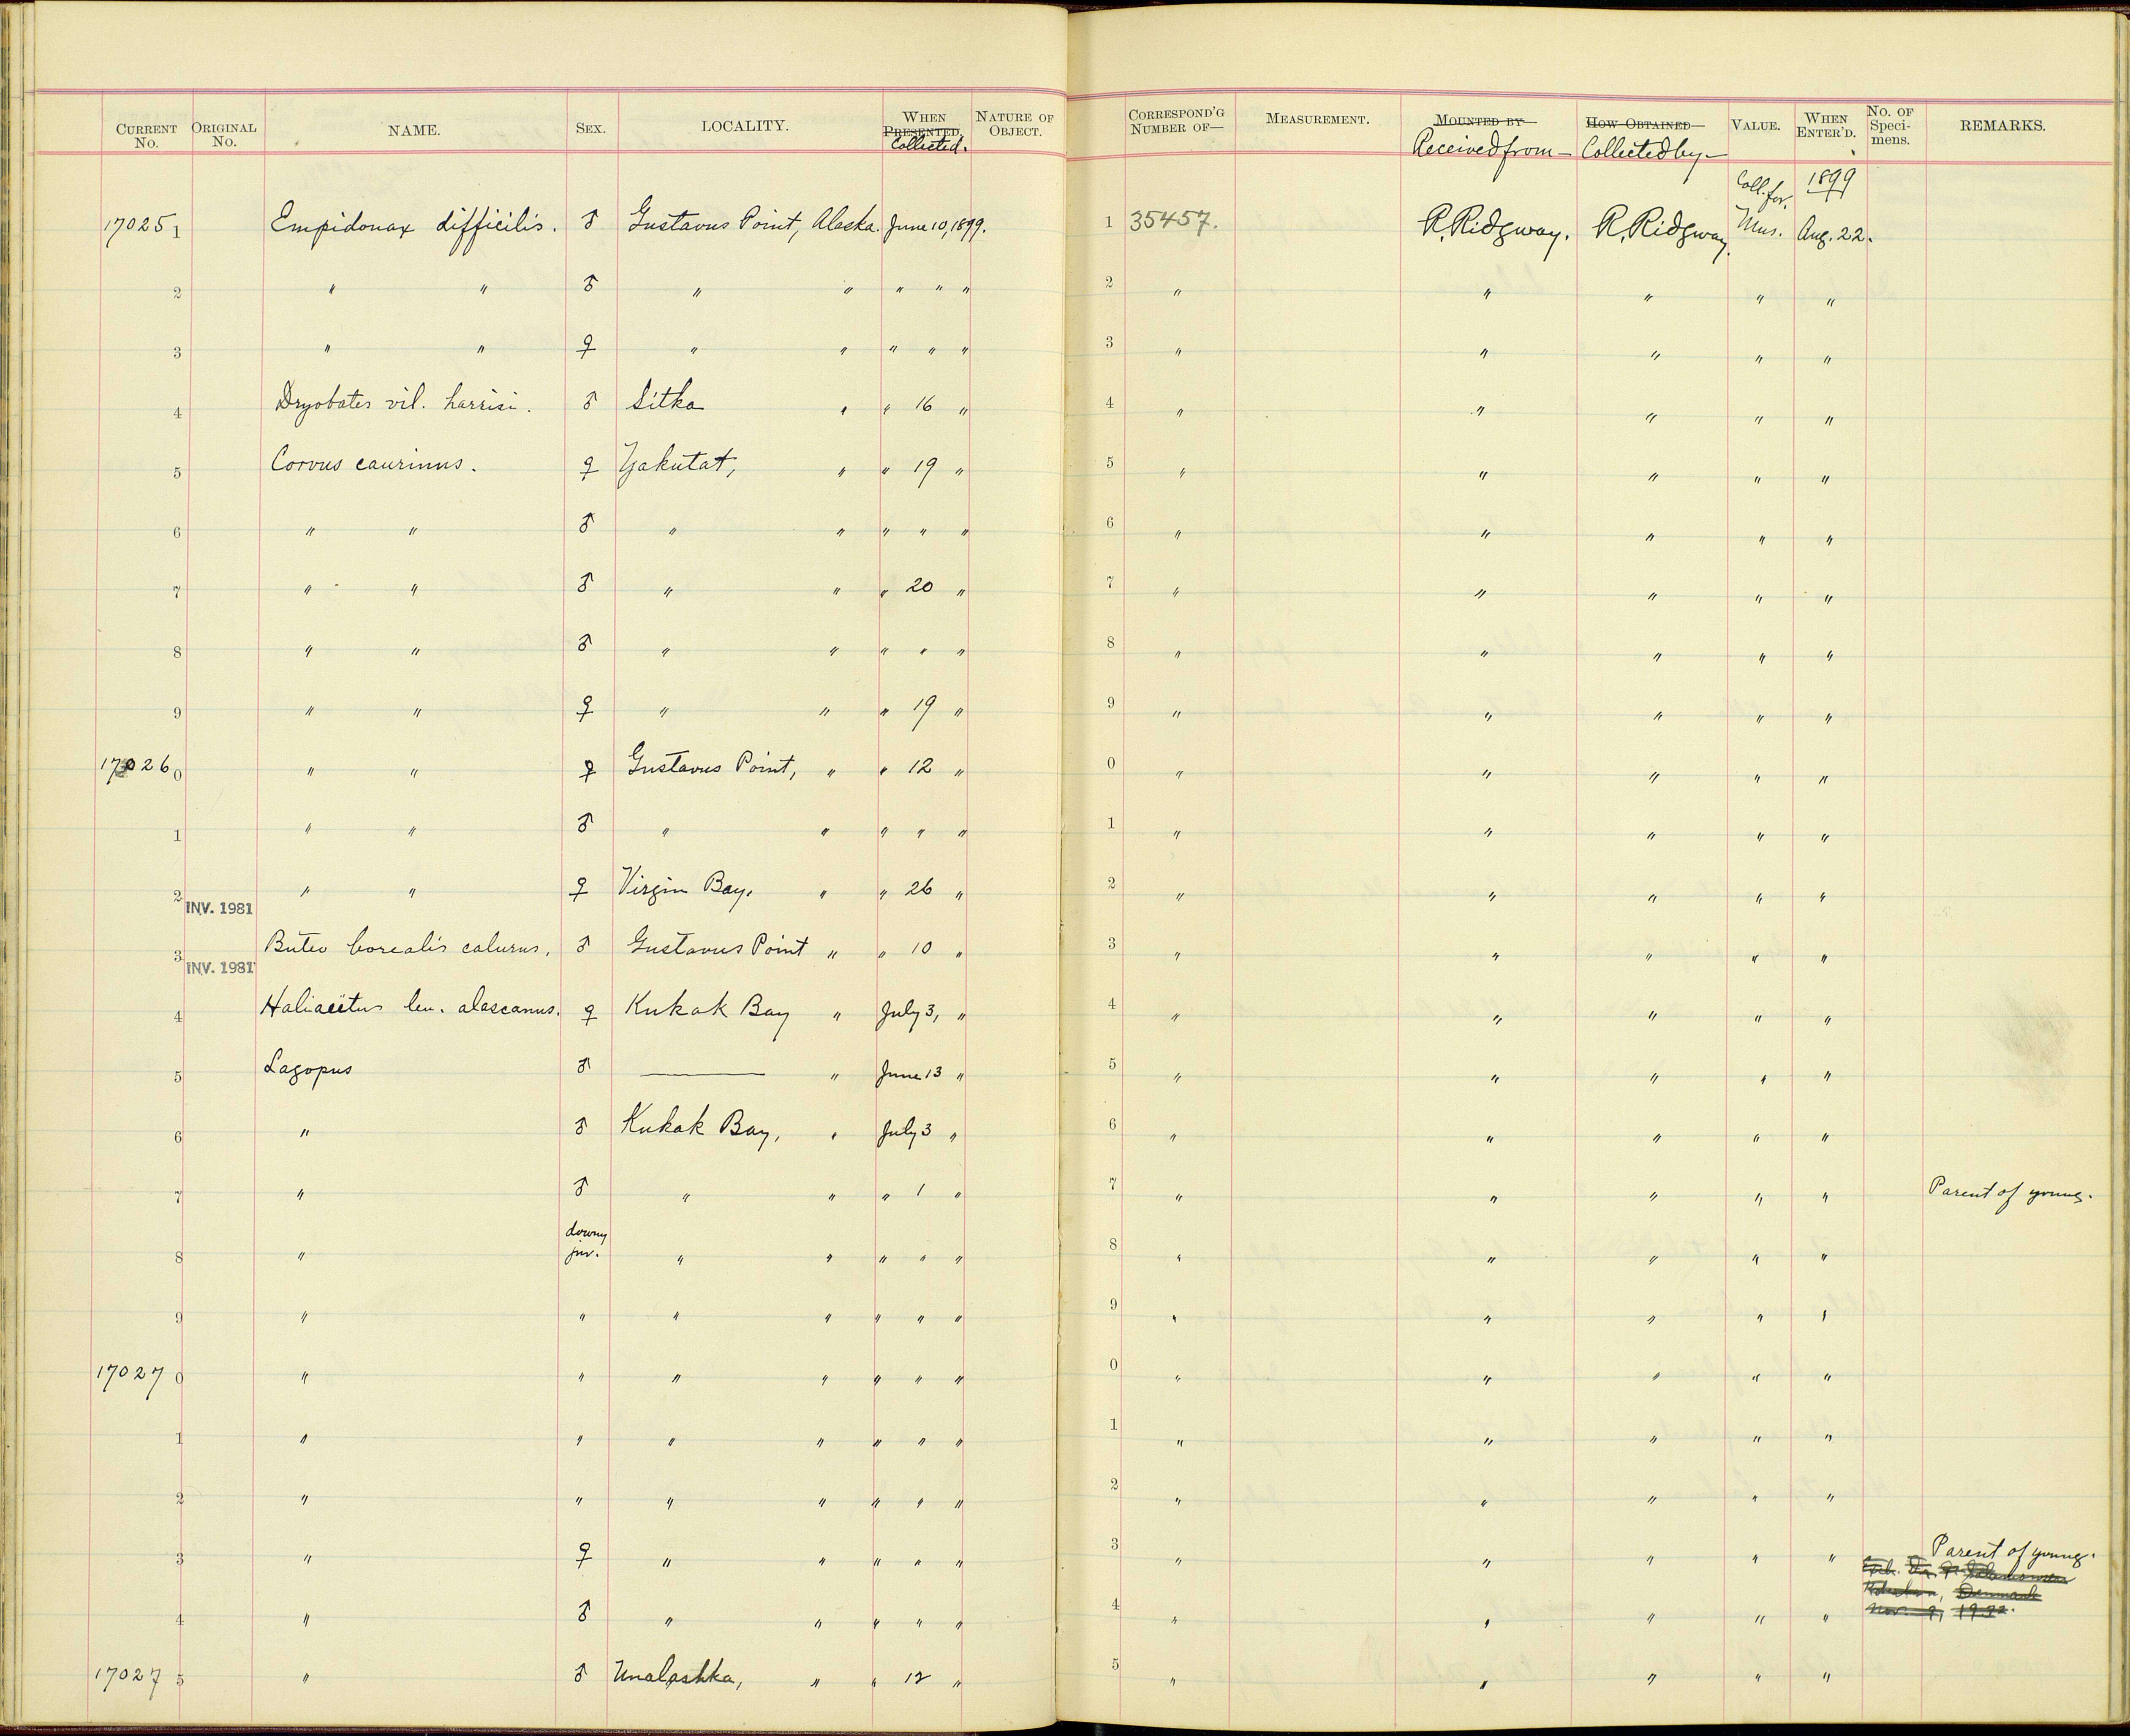 CURRENT No. ORIGINAL No. NAME. SEX. LOCALITY. WHEN PRESENTED. Collected. NATURE OF OBJECT. CORRESPOND'G NUMBER OF— MEASUREMENT. MOUNTED BY— Received from— HOW OBTAINED— Collected by— VALUE. WHEN ENTER'D. No. OF Speci-mens. REMARKS.
170251 Empidonax difficilis. ♂ Gustavus Point, Alaska. June 10, 1899. 1 35457. R. Ridgway. R. Ridgway. Coll. for. Mus. 1899 Aug. 22.
2 " " ♂ " " " " " 2 " " " " "
3 " " ♀ " " " " " 3 " " " " "
4 Dryobates vil. harrisi. ♂ Sitka " " 16 " 4 " " " " "
5 Corvus caurinus. ♀ Yakutat, " " 19 " 5 " " " " "
6 " " ♂ " " " " " 6 " " " " "
7 " " ♂ " " " 20 " 7 " " " " "
8 " " ♂ " " " " " 8 " " " " "
9 " " ♀ " " " 19 " 9 " " " " "
170260 " " ♀ Gustavus Point, " " 12 " 0 " " " " "
1 " " ♂ " " " " " 1 " " " " "
2 INV. 1981 " " ♀ Virgin Bay, " " 26 " 2 " " " " "
3 INV. 1981 Buteo borealis calurus, ♂ Gustavus Point " " 10 " 3 " " " " "
4 Haliaëtus leu. alascanus. ♀ Kukak Bay " July 3, " 4 " " " " "
5 Lagopus ♂ — " June 13 " 5 " " " " "
6 " ♂ Kukak Bay, " July 3 " 6 " " " " "
7 " ♂ " " " 1 " 7 " " " " " Parent of young.
8 " downy juv. " " " " " 8 " " " " "
9 " " " " " " " 9 " " " " "
170270 " " " " " " " 0 " " " " "
1 " " " " " " " 1 " " " " "
2 " " " " " " " 2 " " " " "
3 " ♀ " " " " " 3 " " " " " Parent of young.
Denmark
Nov. 9, 1932.
4 " ♂ " " " " " 4 " " " " "
170275 " ♂ Unalashka, " " 12 " 5 " " " " "